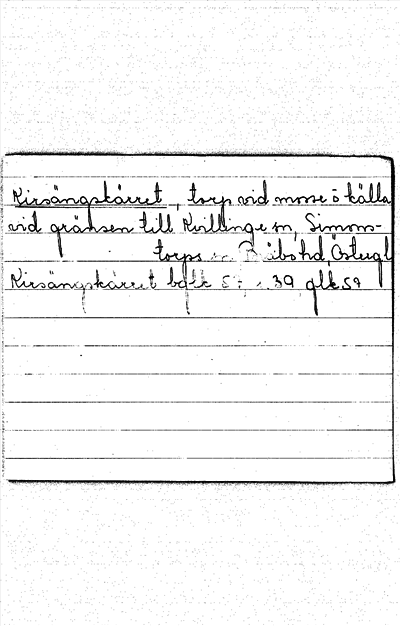 Kirsängskärret, torp vid mosse o källa
vid gränsen till Kvillinge sn, Simons-
torps sn Bråbo hd, Östergl
Kirsängskärret bglk 39 glk 59